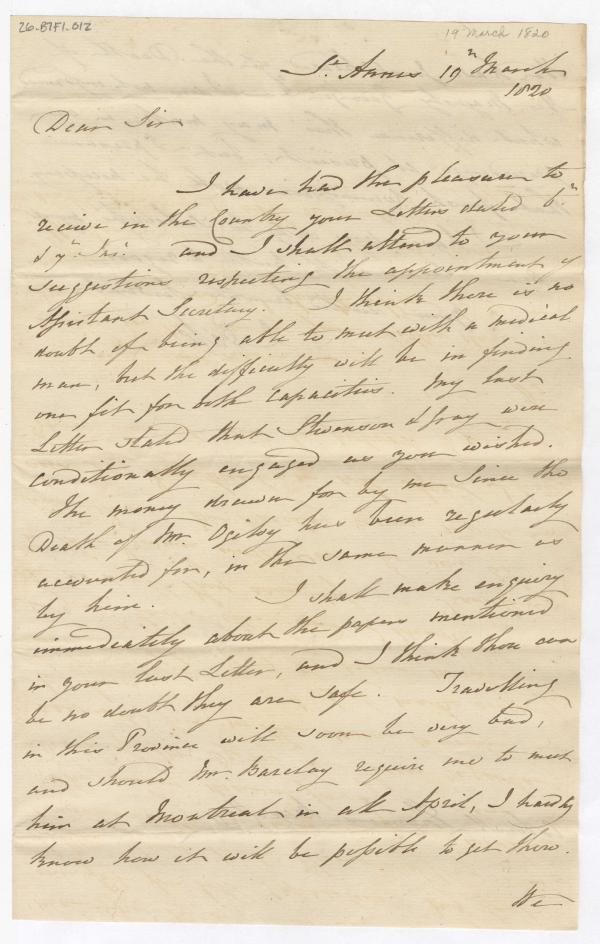 26-B7F1-012
19 March 1820
St. Annes 19th March
1820
Dear Sir
I have had the pleasure to
receive in the Country your Letters dated 6th
& 7th Inst. and I shall attend to your
suggestions respecting the appointment of
Assistant Secretary. I think there is no
doubt of being able to meet with a medical
man, but the difficulty will be in finding
one fit for both Capacities. My last
Letter stated that Stevenson & Gray were
conditionally engaged as you wished.
The money drawn for by me since the
Death of Mr. Ogilvy has been regularly
accounted for, in the same manner as
by him. I shall make enquiry
immediately about the papers mentioned
in your last Letter, and I think there can
be no doubt they are safe. Travelling
in this Province will soon be very bad,
and should Mr. Barclay require me to meet
him at Montreal in all April, I hardly
know how it will be possible to get there.
We